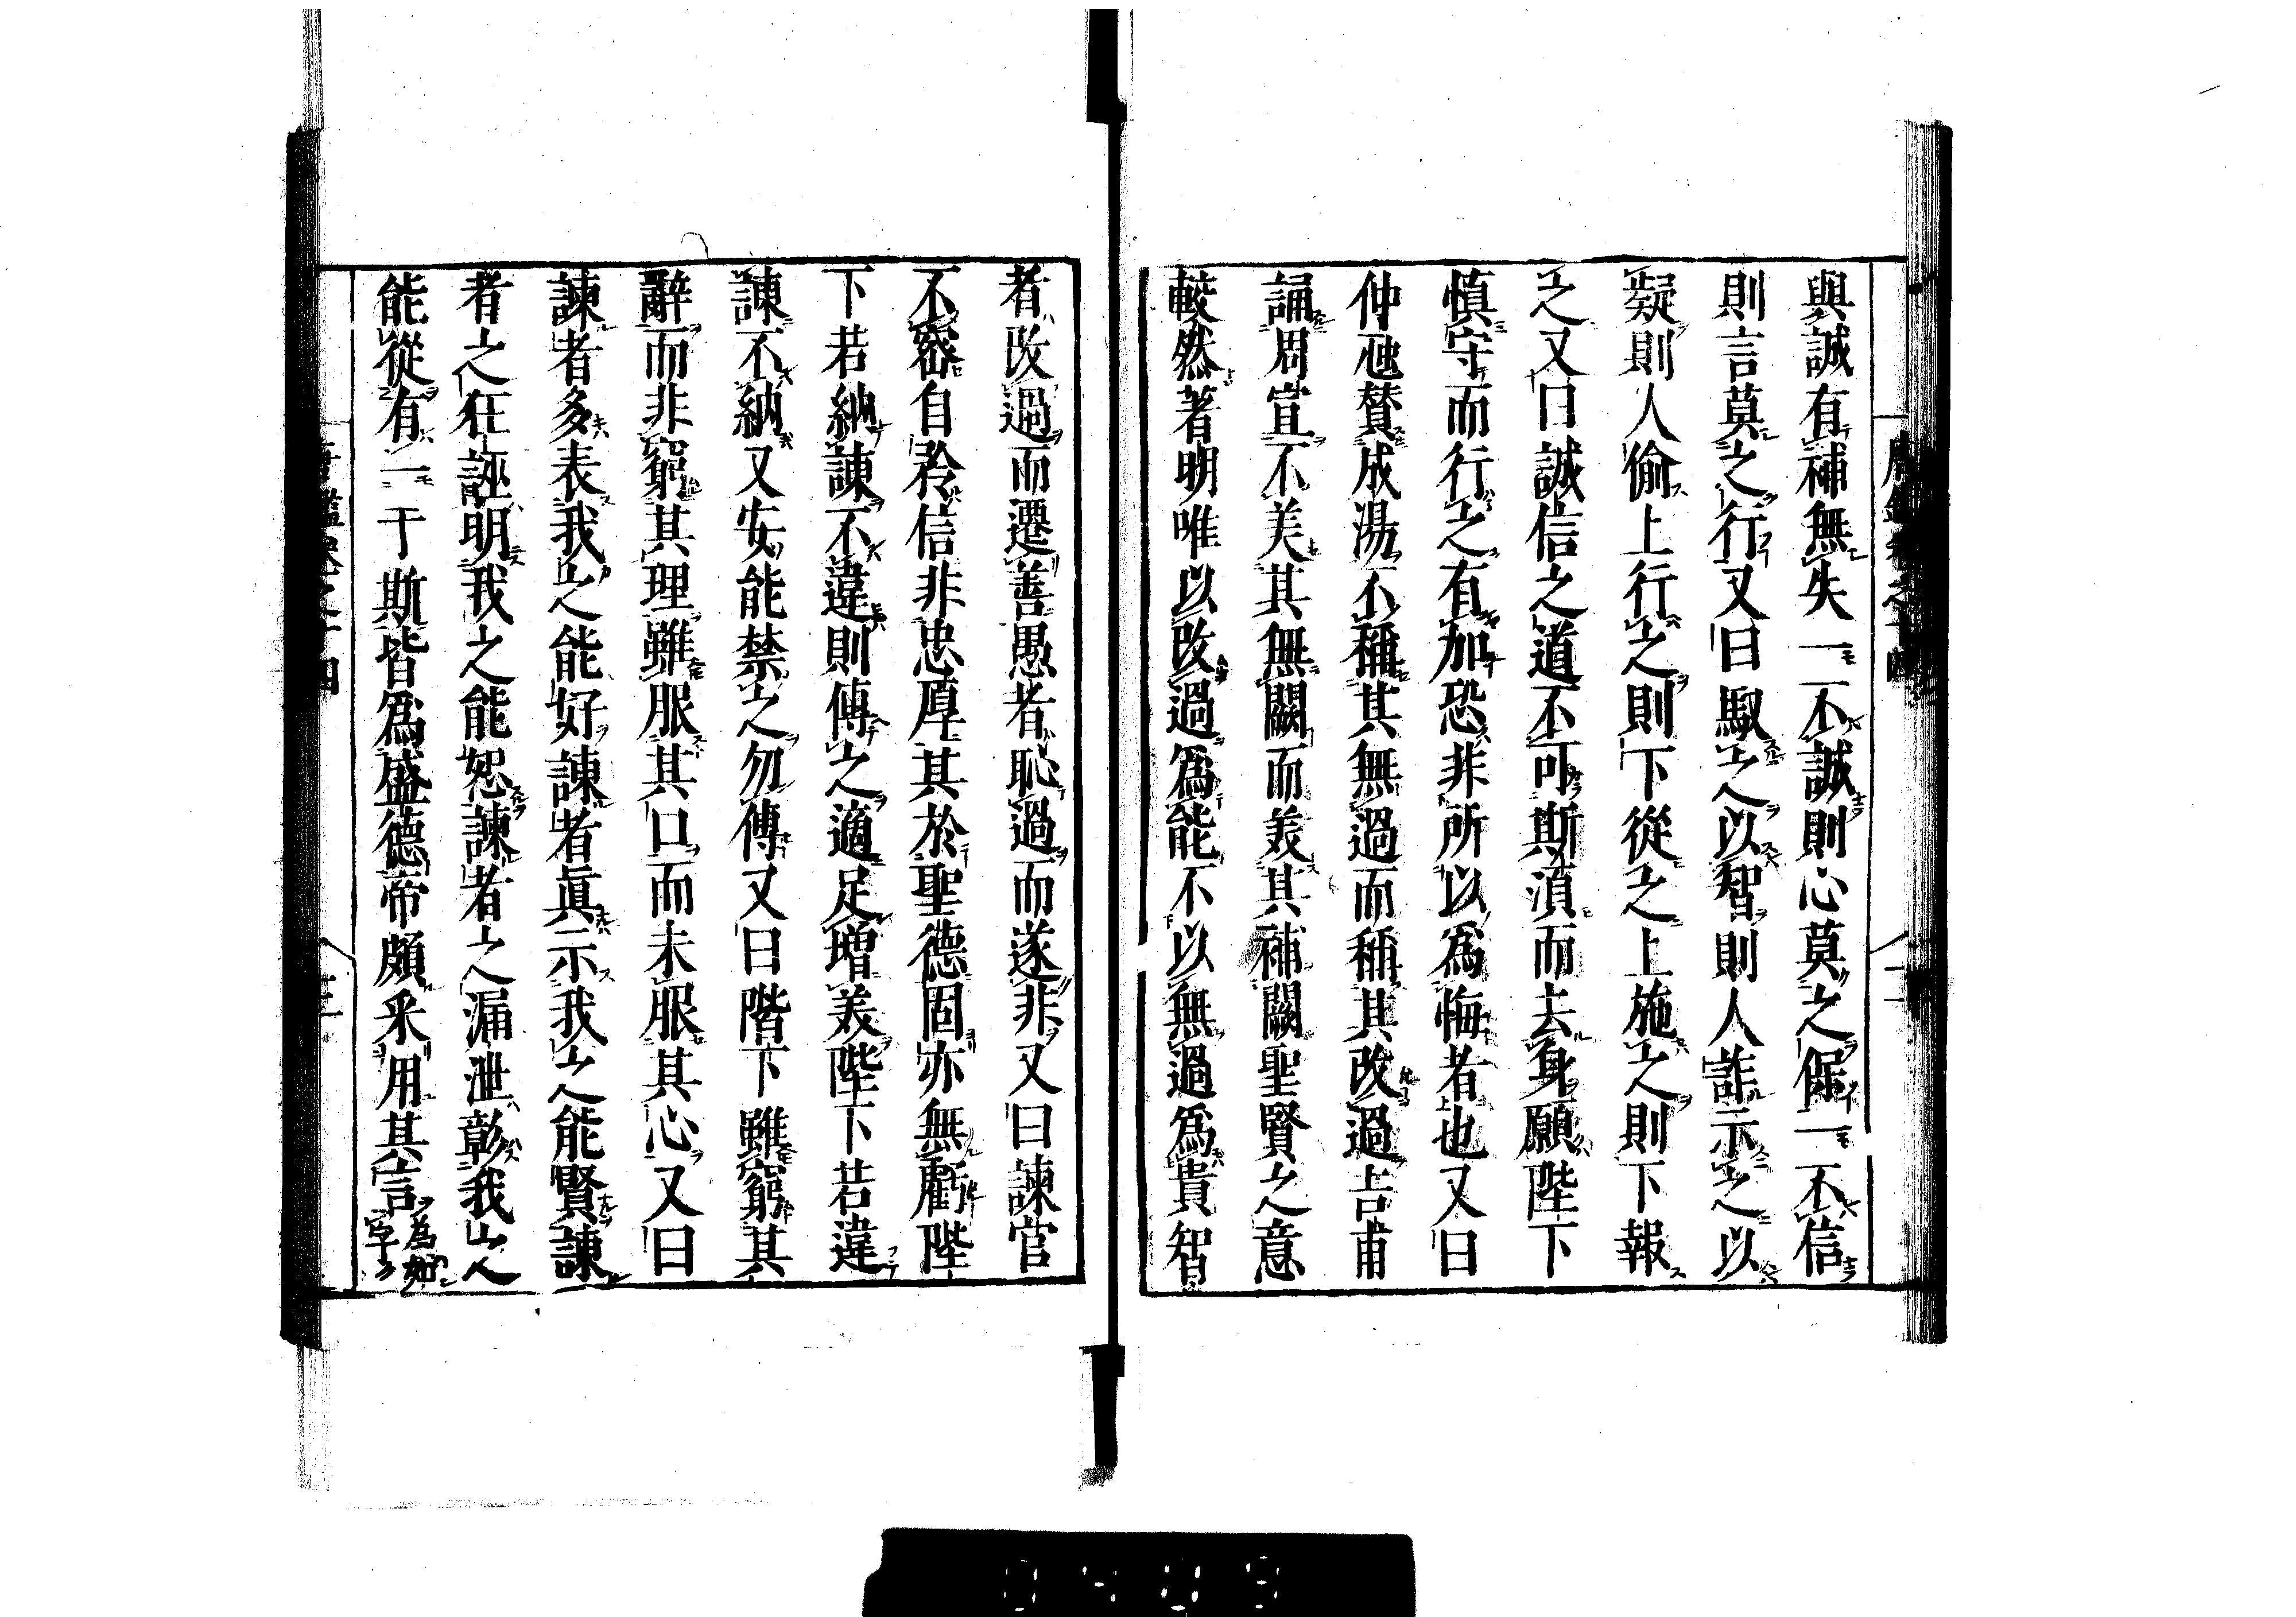 與誠有補無失一不誠則心莫之保一不信
則言莫之行又曰馭之以智則人詐示之以
疑則人偷上行之則下從之上施之則下報
之又曰誠信之道不可斯須而去身願陛下
慎守而行之有加恐非所以為悔者也又曰
仲虺贊成湯不稱其無過而稱其改過吉甫
誦周宣不美其無闕而美其補闕聖賢之意
較然著明唯以改過為能不以無過為貴智
者改過而遷善愚者恥過而遂非又曰諫官
不密自矜信非忠厚其於聖德固亦無虧陛
下若納諫不違則傳之適足增美陛下若違
諫不納又安能禁之勿傳又曰陛下雖窮其
辭而非窮其理雖服其口而未服其心又曰
諫者多表我之能好諫者真示我之能賢諫
者之狂誣明我之能恕諫者之漏泄彰我之
能從有一于斯皆為盛德帝頗采用其言
唐鑑卷之十四